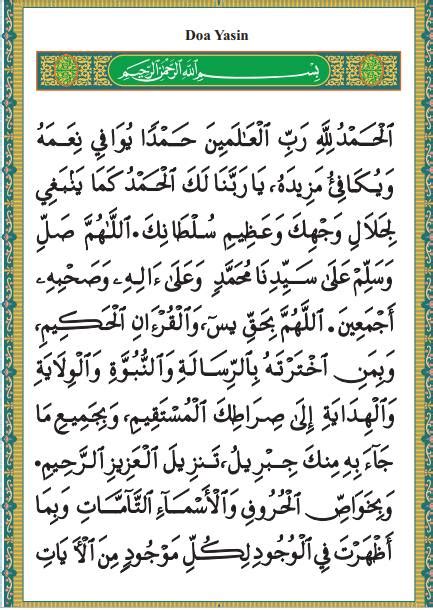 Doa Yasin
بِسْــمِ اللَّهِ الرَّحْمَٰنِ الرَّحِيمِ
اَلْحَمْدُ لِلَّهِ رَبِّ الْعَالَمِينَ حَمْدًا يُوَافِي نِعَمَهُ
وَيُكَافِئُ مَزِيدَهُ، يَا رَبَّنَا لَكَ الْحَمْدُ كَمَا يَنْبَغِي
لِجَلَالِ وَجْهِكَ وَعَظِيمِ سُلْطَانِكَ. اَللَّهُمَّ صَلِّ
وَسَلِّمْ عَلَىٰ سَيِّدِنَا مُحَمَّدٍ وَعَلَىٰ ءَالِهِۦ وَصَحْبِهِۦ
أَجْمَعِينَ. اَللَّهُمَّ بِحَقِّ يسٓ، وَالْقُرْءَانِ الْحَكِيمِ،
وَبِمَنِ اخْتَرْتَهُ بِالرِّسَالَةِ وَالنُّبُوَّةِ وَالْوِلَايَةِ
وَالْهِدَايَةِ إِلَىٰ صِرَاطِكَ الْمُسْتَقِيمِ، وَبِجَمِيعِ مَا
جَآءَ بِهِ مِنكَ جِبْرِيلُ، تَنزِيلَ الْعَزِيزِ الرَّحِيمِ.
وَبِخَوَاصِّ الْحُرُوفِ وَالْأَسْمَآءِ التَّآمَّاتِ وَبِمَا
أَظْهَرْتَ فِي الْوُجُودِ لِكُلِّ مَوْجُودٍ مِنَ الْأٓيَاتِ